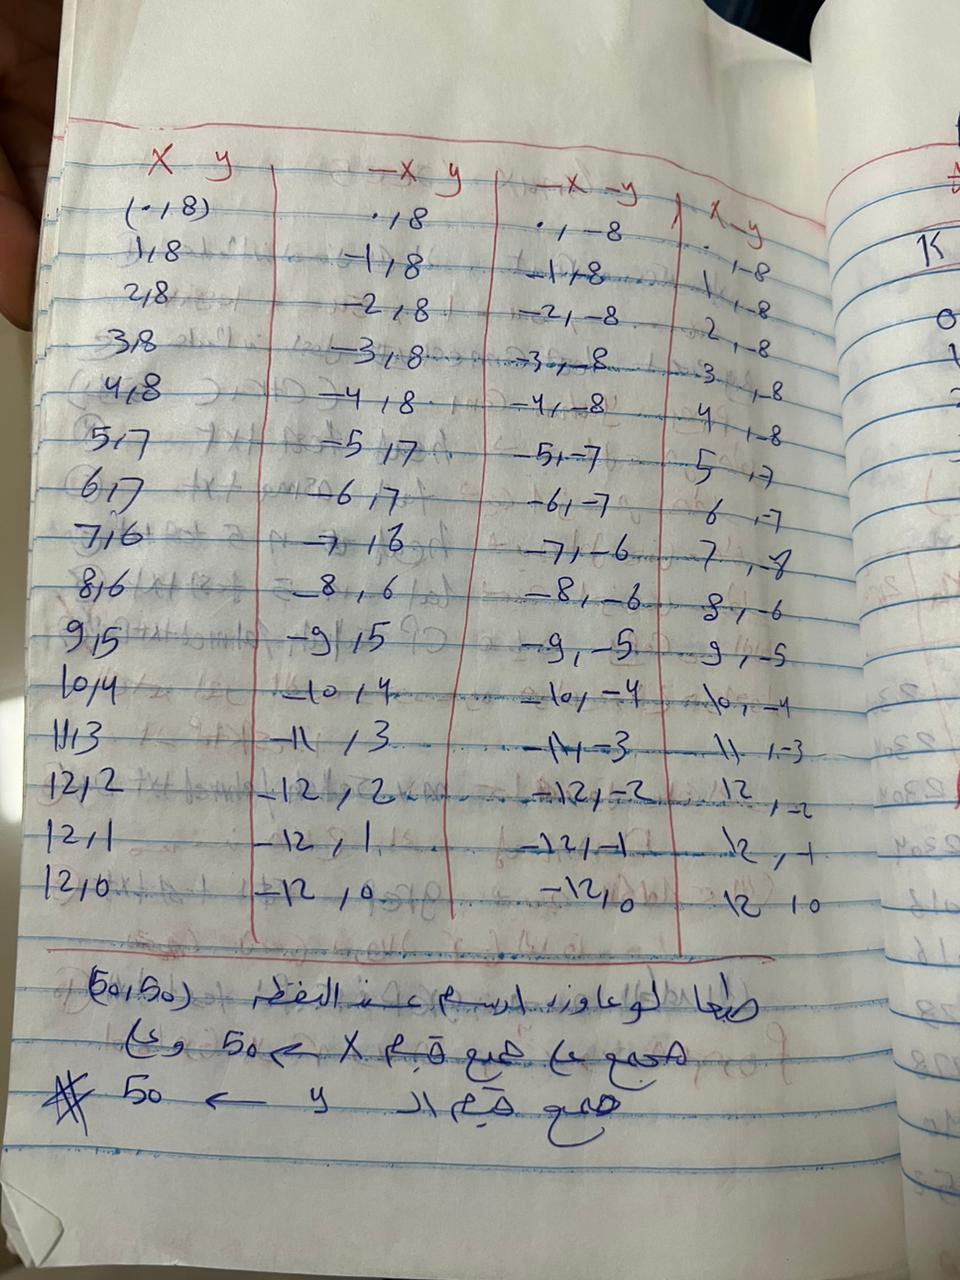 X y -x y -x -y x -y
(٠,8) ٠,8 ٠,-8 ٠,-8
1,8 -1,8 -1,8 1,-8
2,8 -2,8 -2,-8 2,-8
3,8 -3,8 -3,-8 3,-8
4,8 -4,8 -4,-8 4,-8
5,7 -5,7 -5,-7 5,-7
6,7 -6,7 -6,-7 6,-7
7,6 -7,6 -7,-6 7,-8
8,6 -8,6 -8,-6 8,-6
9,5 -9,5 -9,-5 9,-5
10,4 -10,4 -10,-4 10,-4
11,3 -11,3 -11,-3 11,-3
12,2 -12,2 -12,-2 12,-2
12,1 -12,1 -12,-1 12,-1
12,0 -12,0 -12,0 12,0
طبعا لو عاوز ارسم عند النقطة (50,50)
هجمع على جميع قيم X ← 50 وعلى
جميع قيم الـ y ← 50